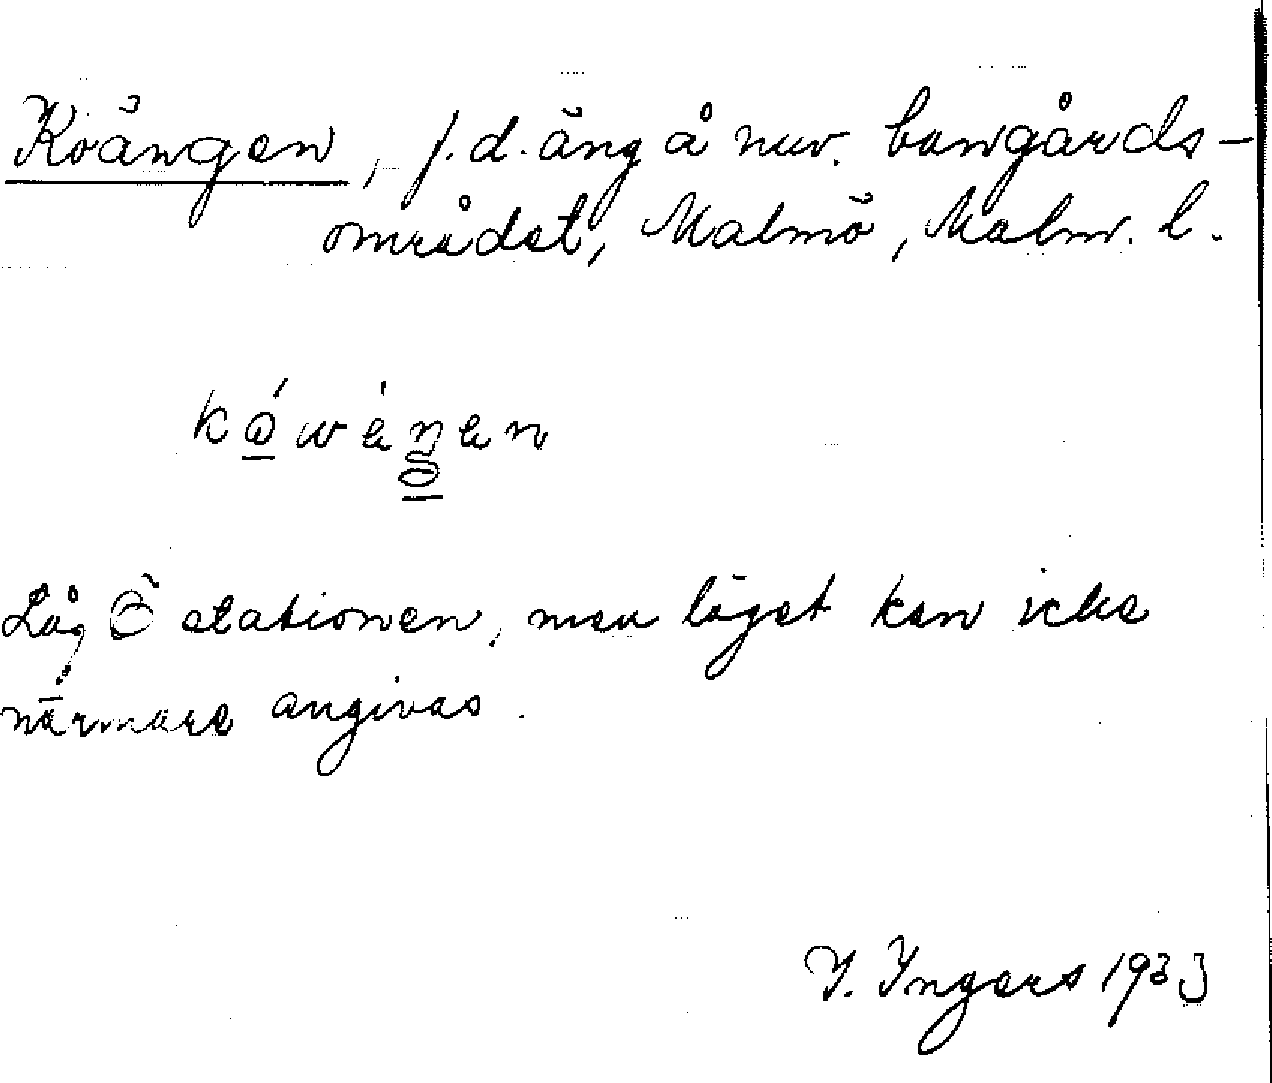 Koängen, f.d. äng å nuv. bangårds-
området, Malmö, Malm. l.
Låg Ö stationen, men läget kan icke
närmare angivas.
I. Ingers 1933